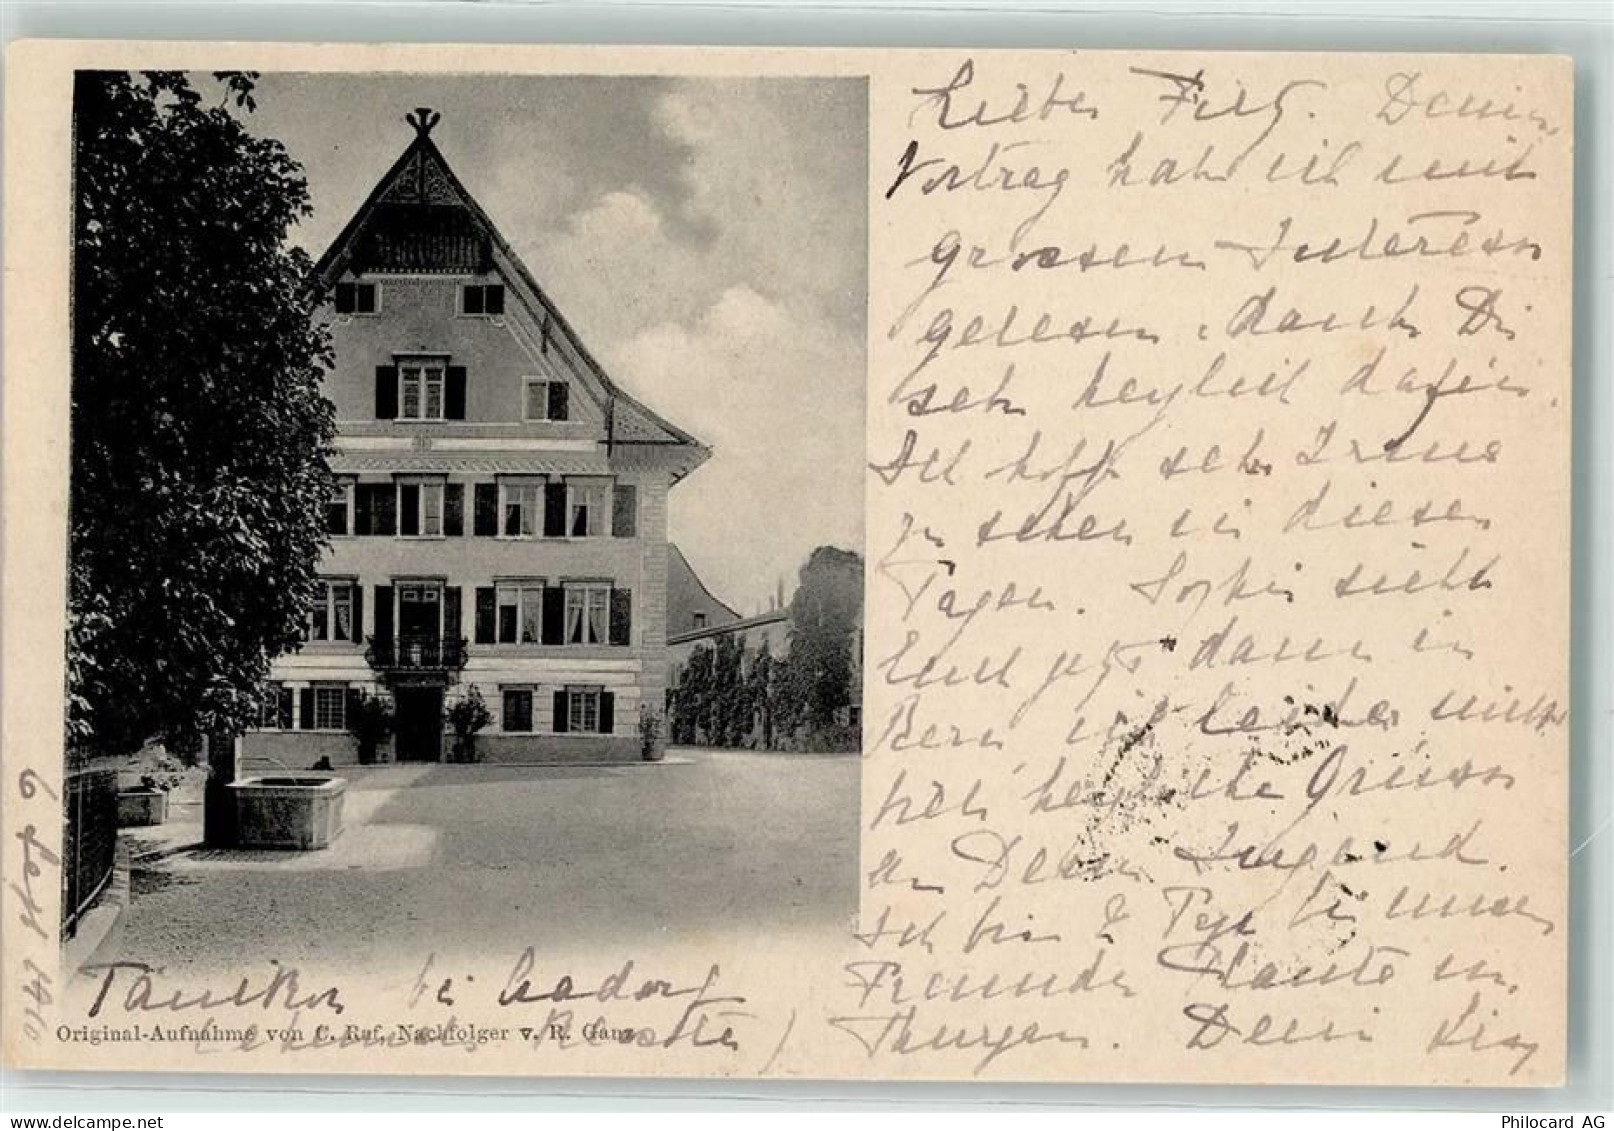 Lieber Fritz. Deinen
Vortrag habe ich mit
grossem Interesse
gelesen, danke Dir
sehr herzlich dafür.
Ich hoffe sehr Irene
zu sehen in diesen
Tagen. Sophie sieht
Euch jetzt dann in
Bern, ich leider nicht
viele herzliche Grüsse
an Deine Jugend.
Ich bin 2 Tage bei unsern
Freunden Plante im
Thurgau. Dein
Tänikon bei Aadorf
ehemals Kloster)
6 Sept 1910
Original-Aufnahme von C. Ruf, Nachfolger v. R. Ganz
Philocard AG